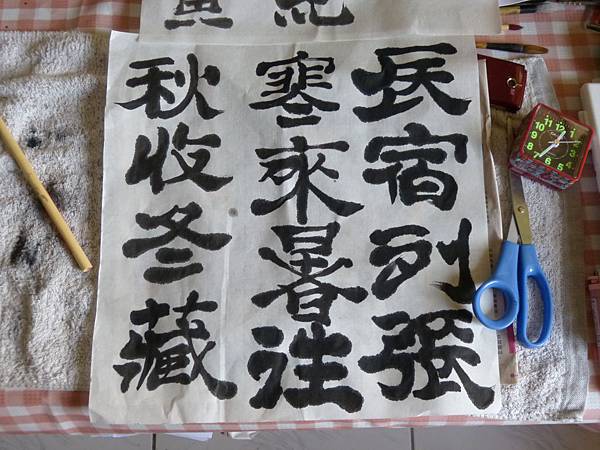 辰宿列張
寒來暑往
秋收冬藏